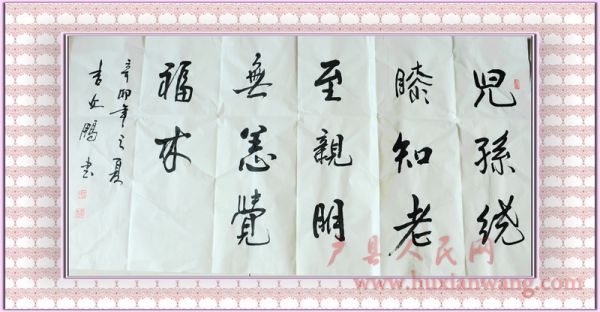 兒孫绕
膝知老
至親朋
無恙覺
福来
辛卯年之夏
鵬书
户县人民网
www.huxianwang.com